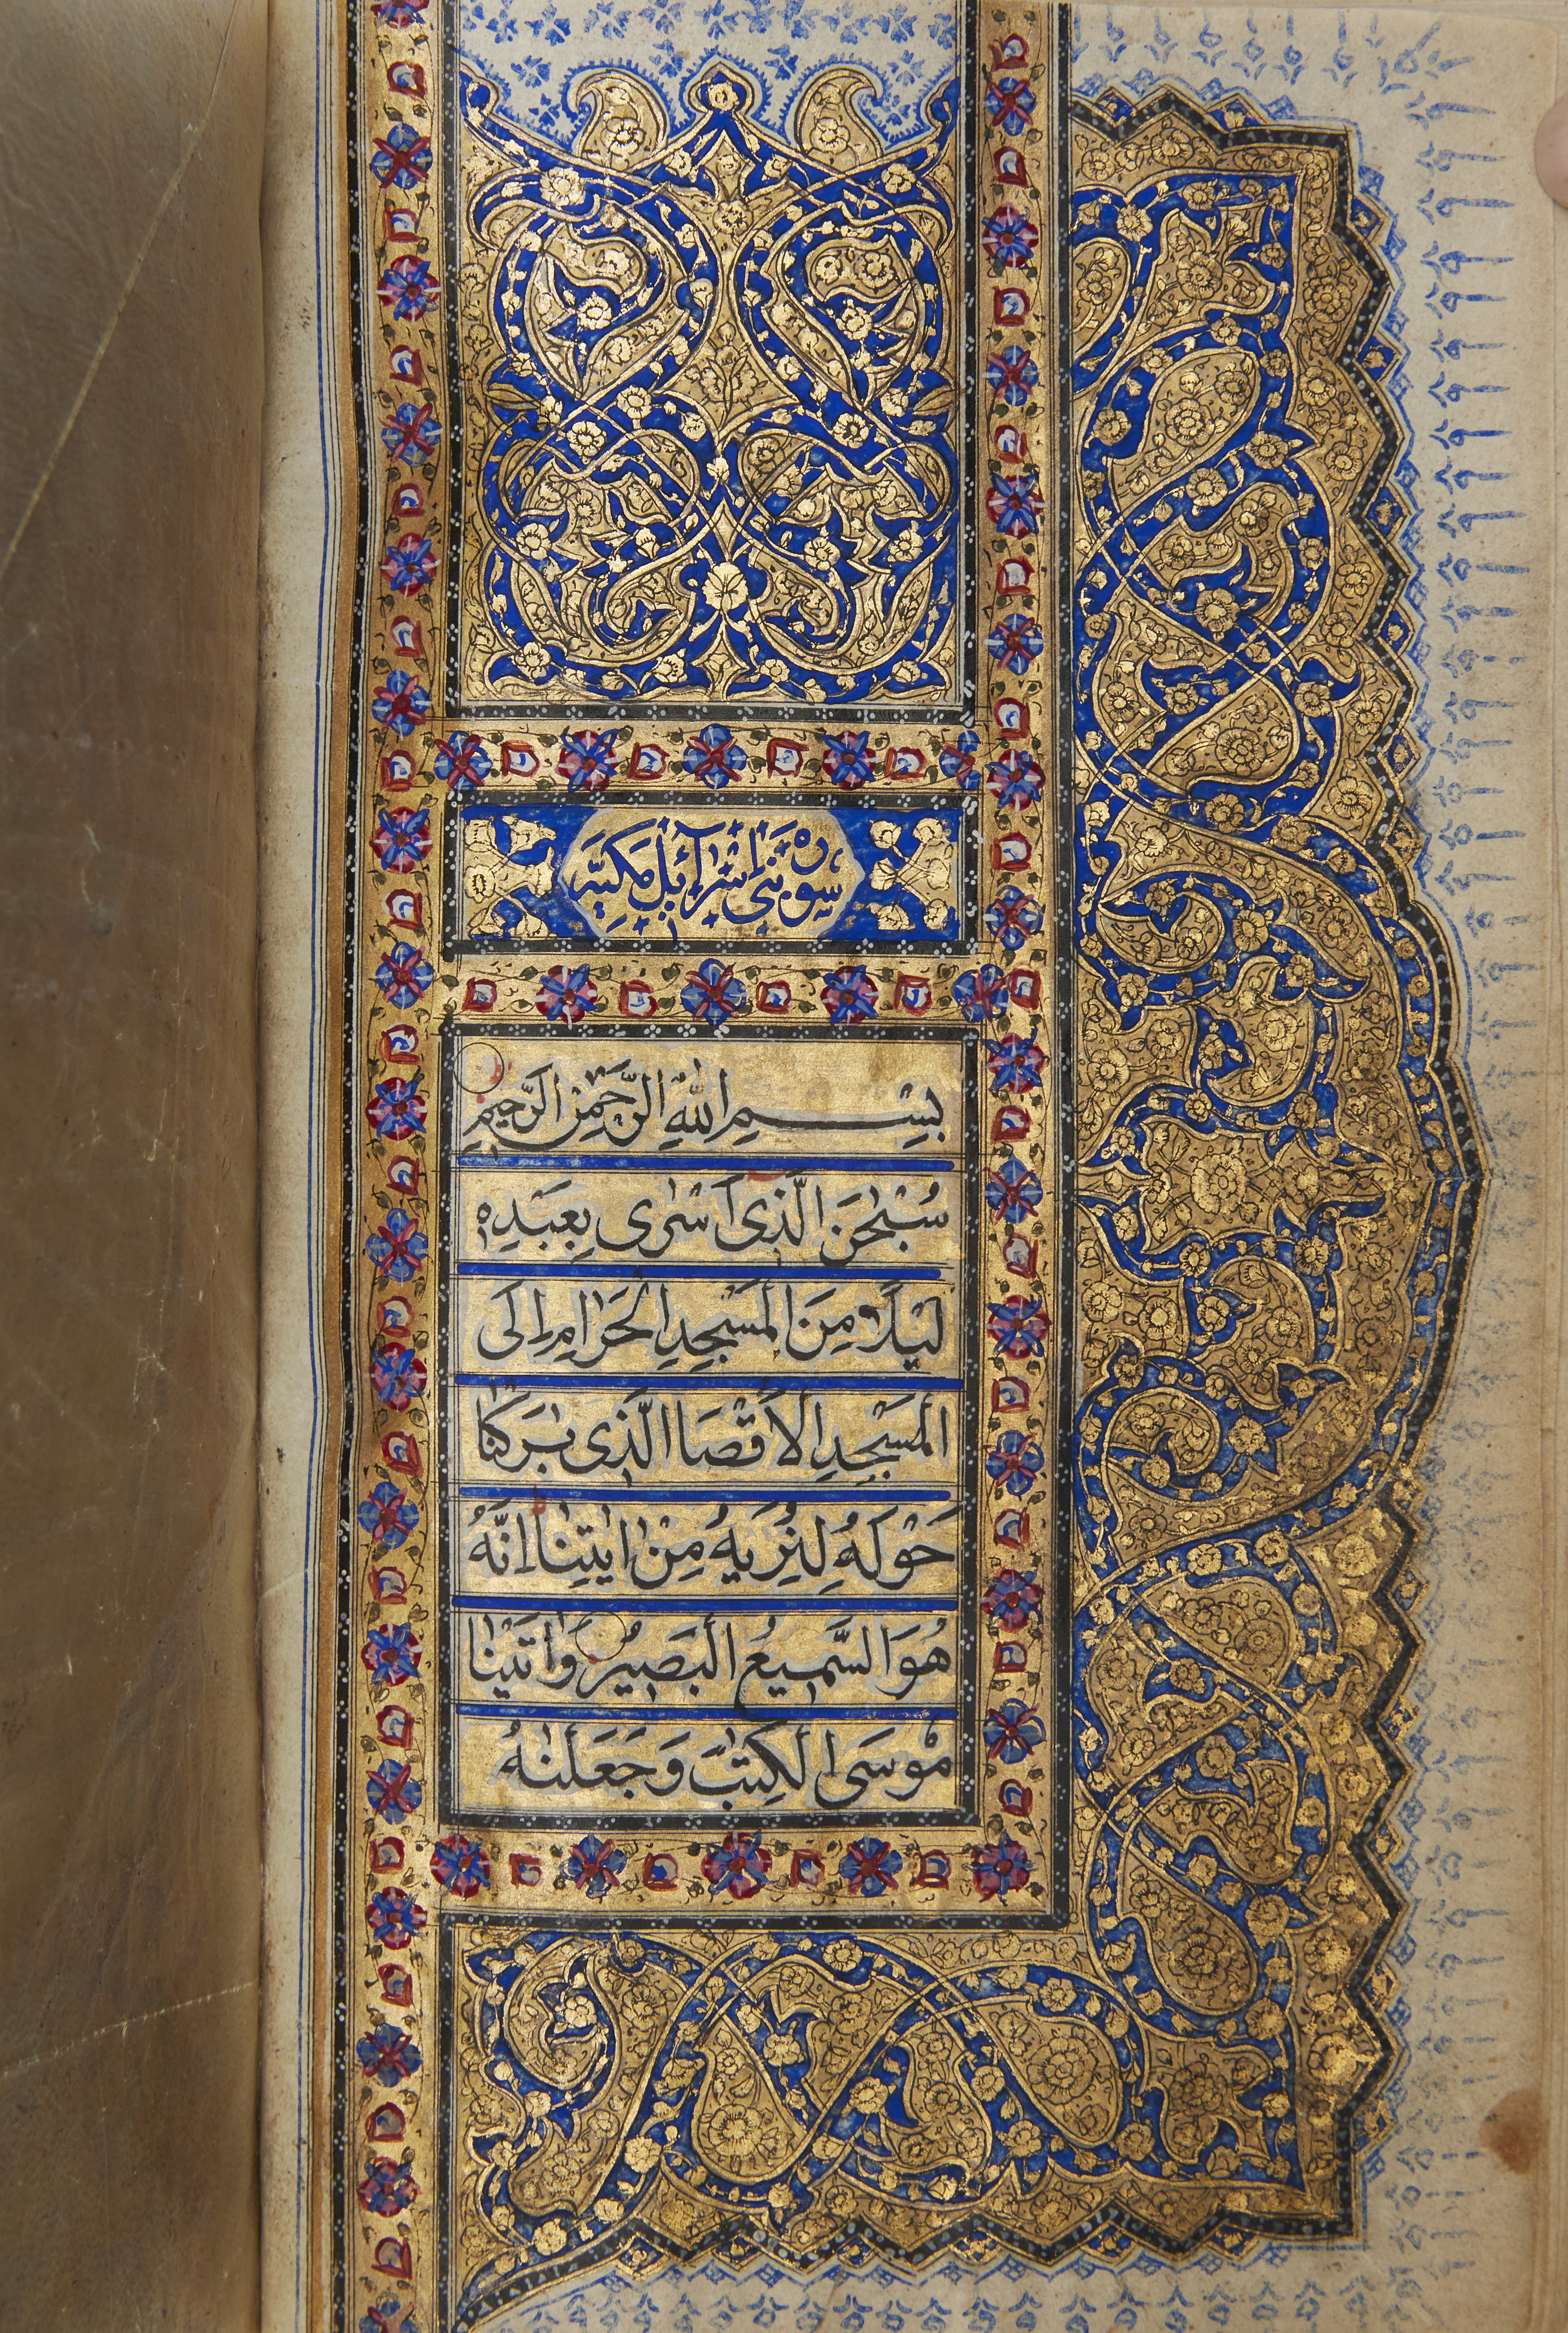 سورة بني اسرآئل مكية
بِسْمِ اللّٰهِ الرَّحْمٰنِ الرَّحِيمِ
سُبْحٰنَ الَّذِى اَسْرٰى بِعَبْدِهٖ
لَيْلًا مِنَ الْمَسْجِدِ الْحَرَامِ اِلَى
الْمَسْجِدِ الْاَقْصَا الَّذِى بٰرَكْنَا
حَوْلَهُ لِنُرِيَهُ مِنْ اٰيٰتِنَا اِنَّهُ
هُوَ السَّمِيعُ الْبَصِيرُ وَاٰتَيْنَا
مُوسَى الْكِتٰبَ وَجَعَلْنٰهُ